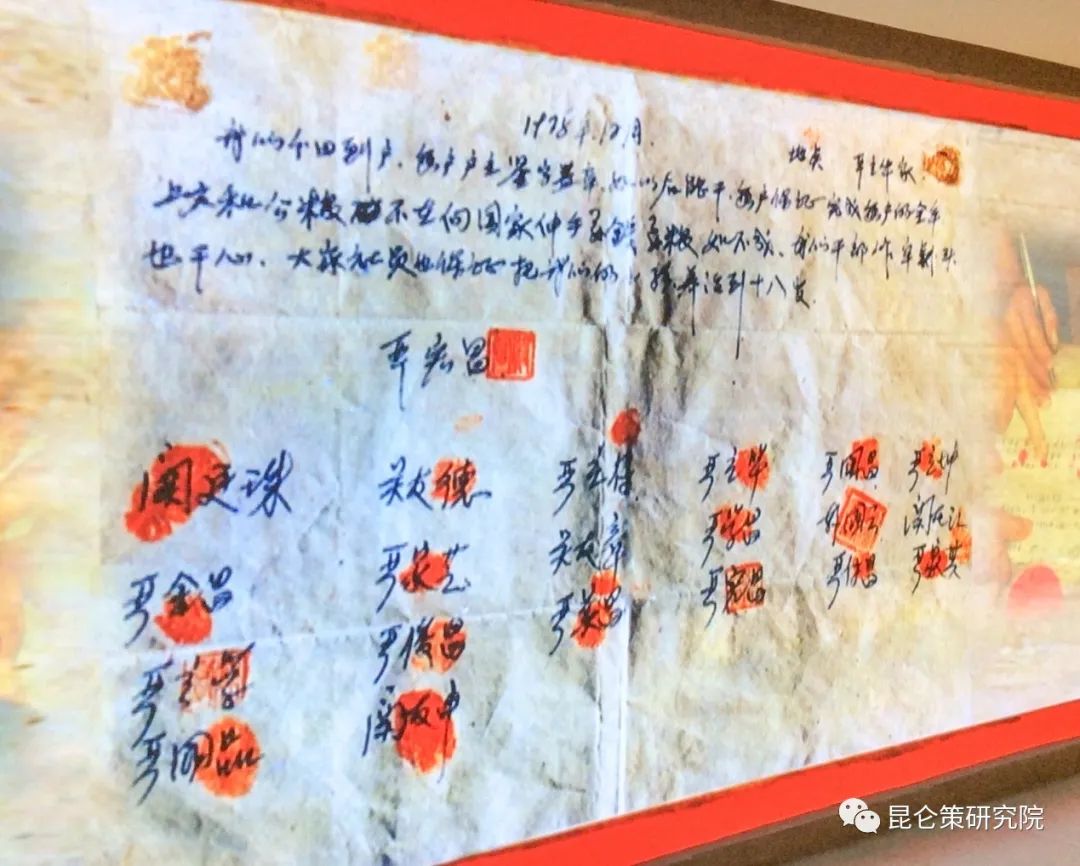 1978年12月. 地点 严立华家.
我们分田到户,每户户主签字盖章,如以后能干,每户保证完成每户的全年
上交和公粮 不在向国家伸手要钱要粮,如不成,我们干部作牢刹头
也干心,大家社员也保证把我们的小孩养活到十八岁.
严宏昌
关廷珠 关友德 严立符 严立华 严国昌 严立坤
关友章 严学昌 韩国云 关友江
严金昌 严家芝 严美昌 严宏昌 严付昌 严家其
严立学 严俊昌
严国品 关友申
昆仑策研究院